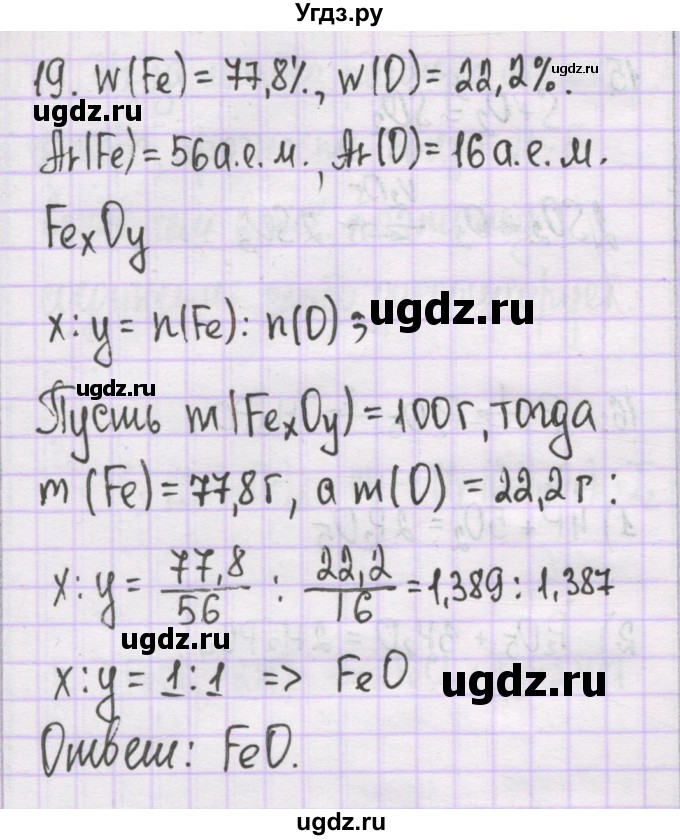 Угдз.ру
19. w(Fe) = 77,8%, w(O) = 22,2%.
ugdz.ru
Ar(Fe) = 56 а.е.м., Ar(O) = 16 а.е.м.
FexOy
x : y = n(Fe) : n(O) ;
ugdz.ru
ugdz.ru
Пусть m(FexOy) = 100 г, тогда
m (Fe) = 77,8 г, а m(O) = 22,2 г :
x : y = 77,8/56 : 22,2/16 = 1,389 : 1,387
ugdz.ru
x : y = 1 : 1 => FeO
ugdz.ru
Ответ: FeO.
ugdz.ru